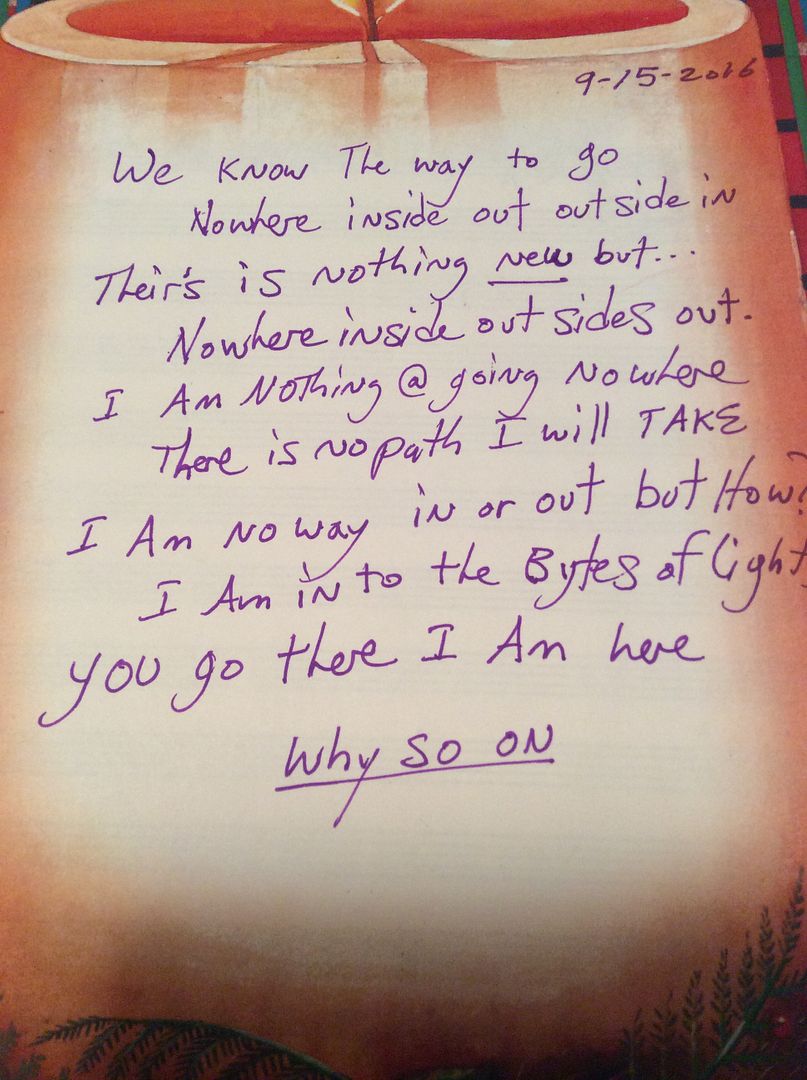 9-15-2016
We KNOW The way to go
Nowhere inside out outside in
Their's is nothing new but...
Nowhere inside out sides out.
I Am NOThing @ going Nowhere
There is No path I will TAKE
I Am No way in or out but How?
I Am in to the Bytes of light
YOU go there I Am here
Why SO ON